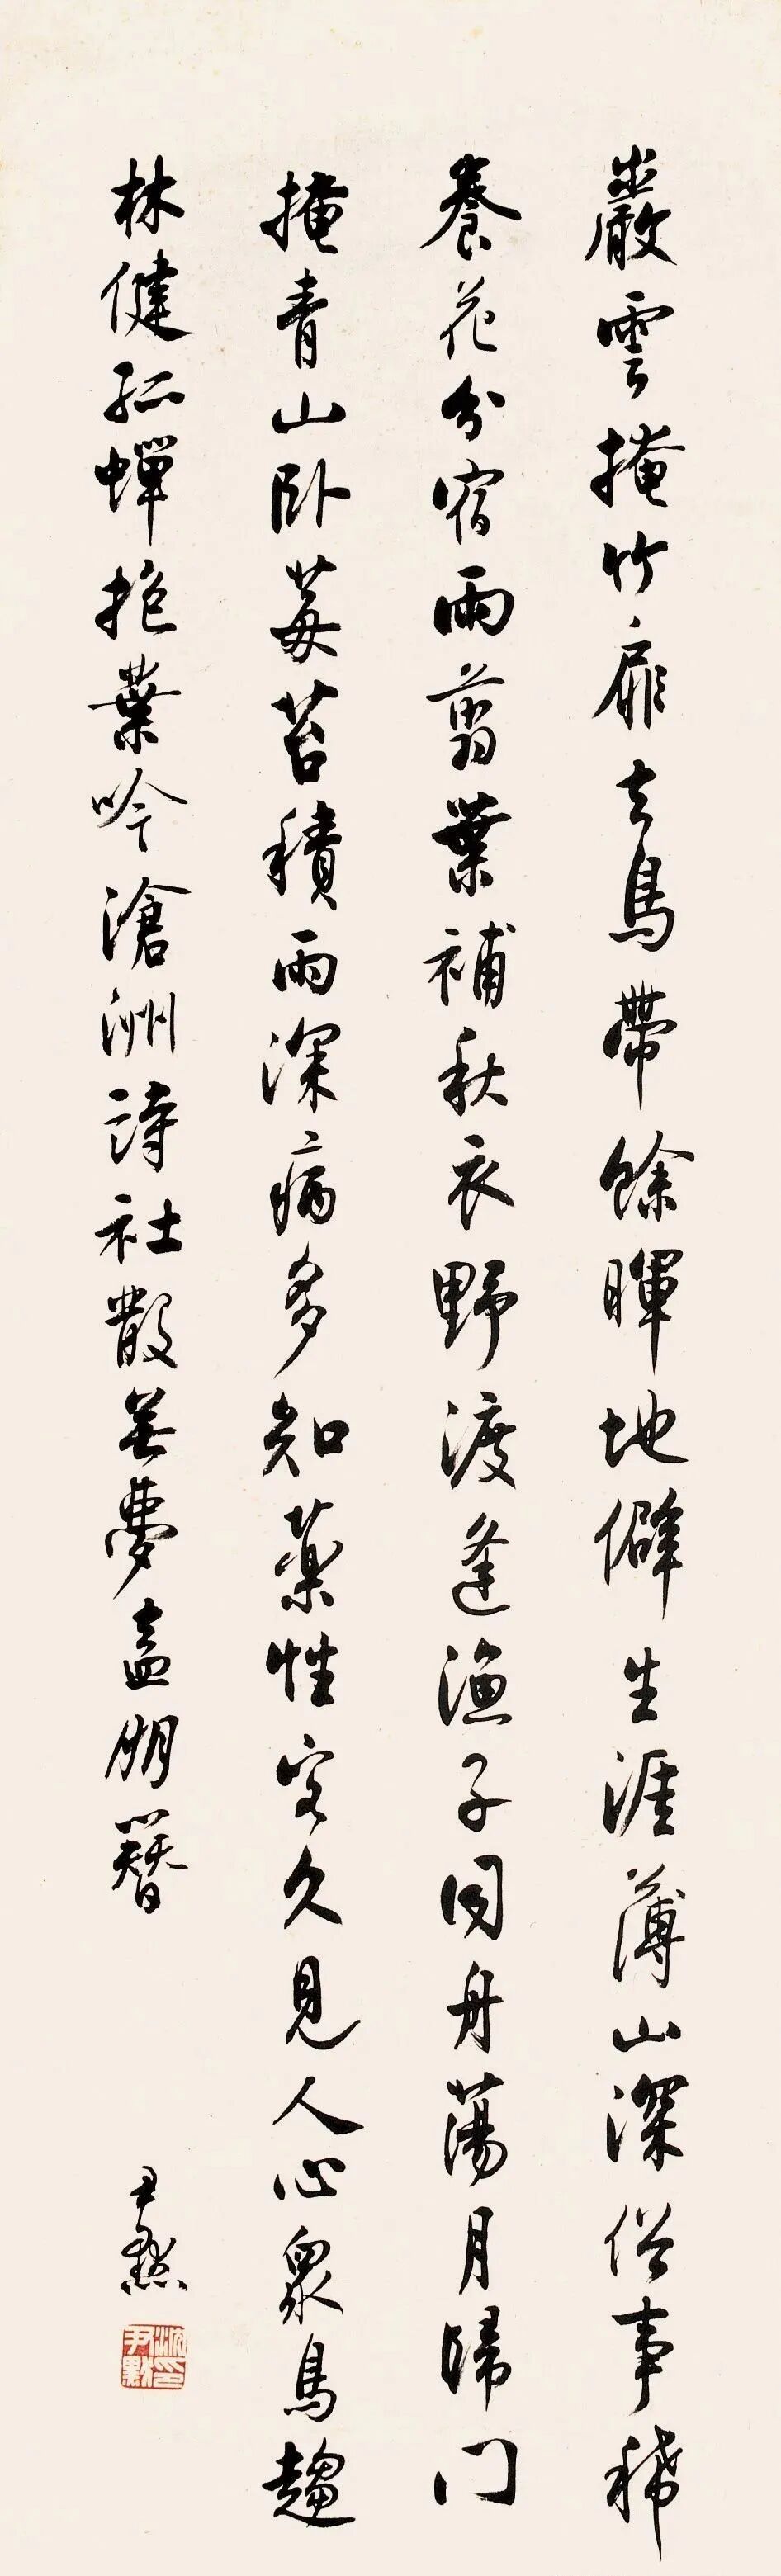 巖雲掩竹扉去鳥帶餘暉地僻生涯薄山深俗事稀
養花分宿雨翦葉補秋衣野渡逢漁子同舟蕩月歸門
掩青山臥莓苔積雨深病多知藥性客久見人心眾鳥趨
林健孤蟬抱葉吟滄洲詩社散無夢盍朋簪
尹默
沈尹默印